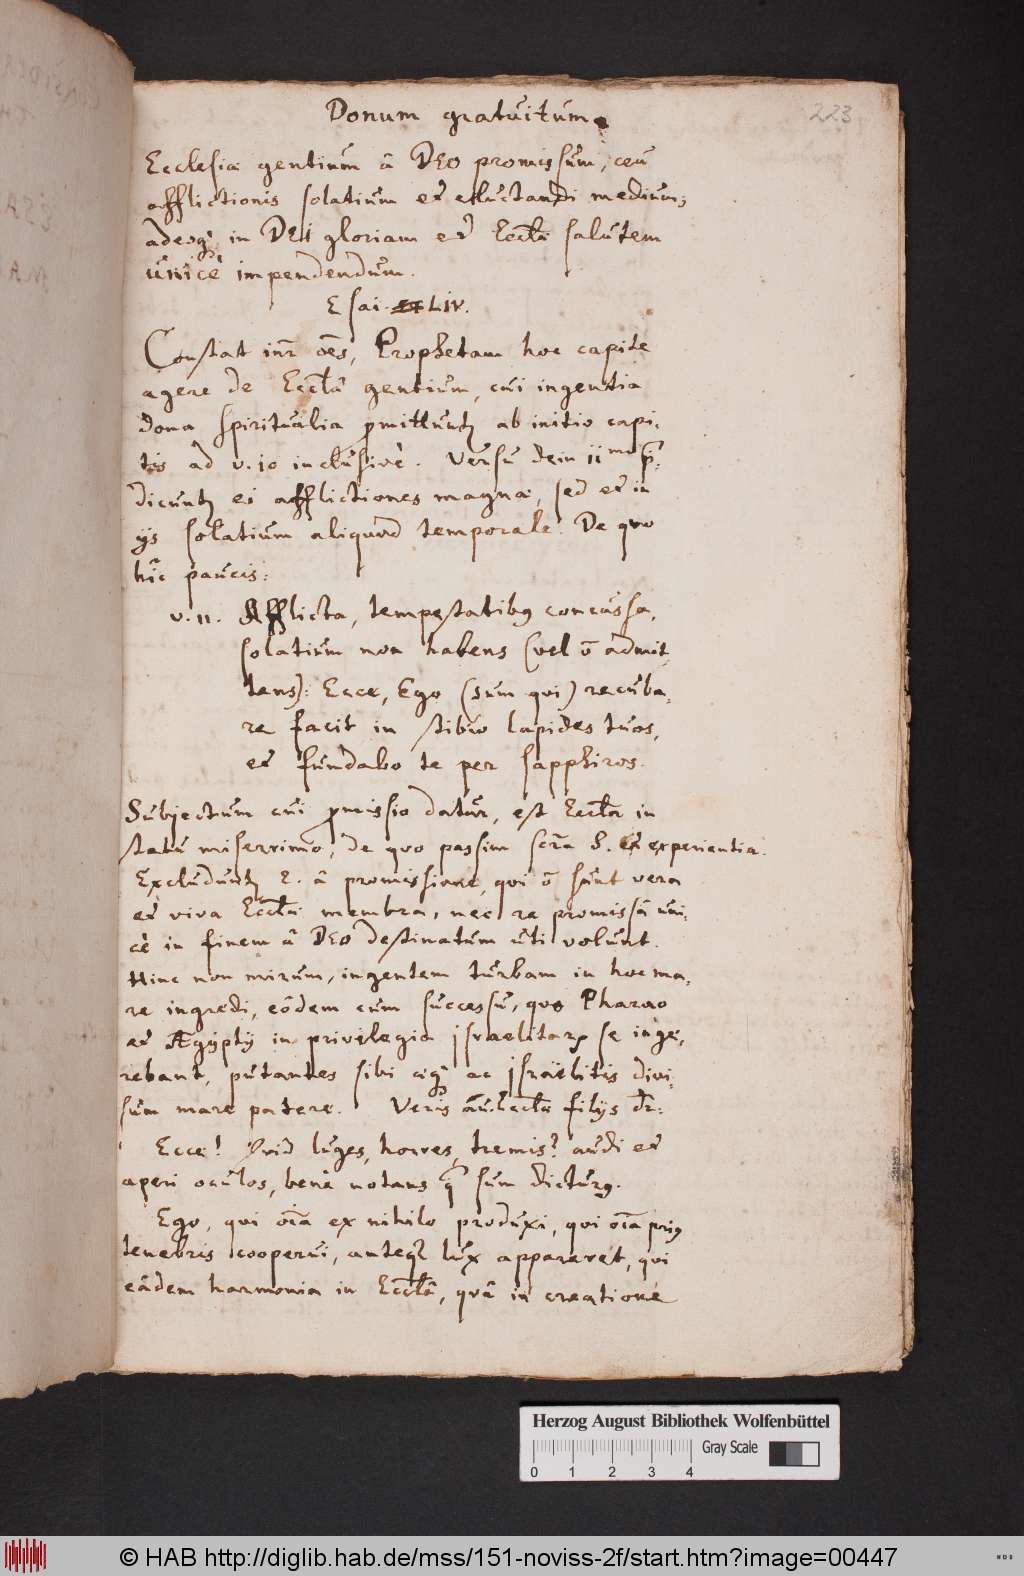 223
Donum gratuitum.
Ecclesiæ gentium â DEO promissum, ceu
afflictionis solatium et eluctandi medium;
adeoq; in DEI gloriam et Eccl̄æ salutem
unicè impendendum.
Esai. LIV.
Constat int̄ oēs, Prophetam hoc capite
agere de Eccl̄â gentium, cui ingentia
dona spiritualia promittunt̄ ab initio capi-
tis ad v. 10 inclusivè. Versu dein 11mo p̄-
dicunt̄ ei afflictiones magnæ, sed et in
ijs solatium aliquod temporale. De quo
hîc paucis:
v. 11. Afflicta, tempestatibq concussa,
solatium non habens (vel ō admit-
tens): Ecce, Ego (sum qui) recuba-
re facit in stibio lapides tuos,
et fundabo te per sapphiros.
Subjectum cui promissio datur, est Eccl̄a in
statu miserrimo, de quo passim scr̄a S. et experientia.
Excludunt̄ E. â promissione, qui ō sunt vera
et viva Eccl̄æ membra, nec re promissâ uni-
cè in finem â DEO destinatum uti volunt.
Hinc non mirum, ingentem turbam in hoc ma-
re ingredi, eôdem cum successu, quo Pharao
et Ægyptij in privilegia Israelitarꝝ se inge-
rebant, putantes sibi æq; ac Israëlitis divi-
sum mare patere. Veris Eccl̄æ filijs dr̄:
Ecce! Quid luges, horres, tremis? audi et
aperi oculos, benè notans q̄ sum dicturq.
Ego, qui oīa ex nihilo produxi, qui oīa priq
tenebris cooperui, anteq̄ lux appareret, qui
eâdem harmonia in Eccl̄â, quâ in creatione
Herzog August Bibliothek Wolfenbüttel
Gray Scale
0 1 2 3 4
© HAB http://diglib.hab.de/mss/151-noviss-2f/start.htm?image=00447